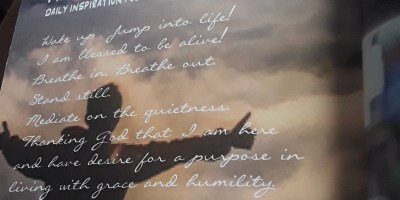 DAILY INSPIRATION
Wake up Jump into life!
I am blessed to be alive!
Breathe in Breathe out
Stand still
Mediate on the quietness.
Thanking God that I am here
and have desire for a purpose in
living with grace and humility.